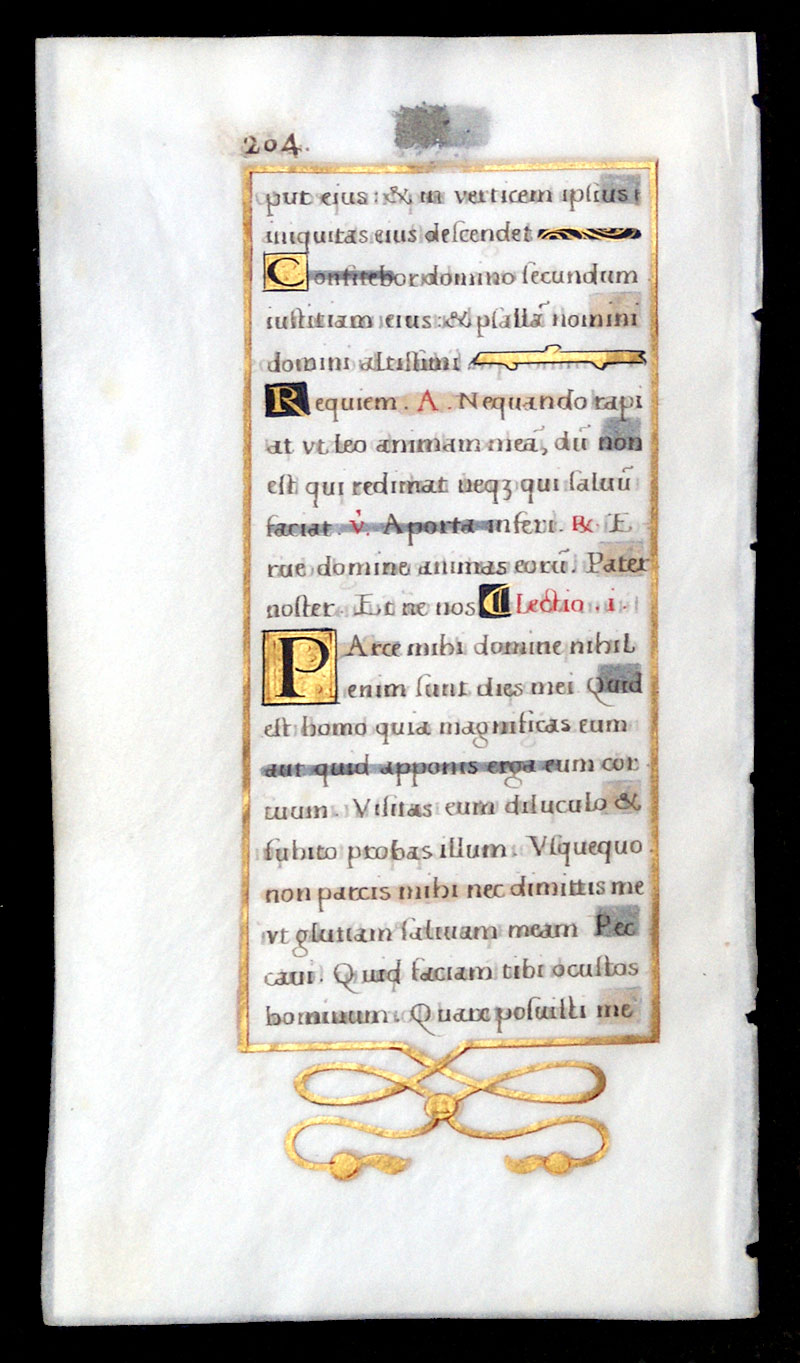 204.
put ejus : & in verticem ipsius
iniquitas eius descendet
Confitebor domino secundum
iustitiam eius : & psallā nomini
domini altissimi
Requiem . A . Nequando rapi
at vt leo animam meā, dū non
est qui redimat neqꝫ qui saluū
faciat . v̓. A porta inferi . ℞ E
rue domine animas eorū . Pater
noster . Et ne nos ⁋ Lectio . i .
PArce mihi domine nihil
enim sunt dies mei Quid
est homo quia magnificas eum
aut quid apponis erga eum cor
tuum . Visitas eum diluculo &
subito probas illum . Vsquequo
non parcis mihi nec dimittis me
vt glutiam saliuam meam Pec
caui . Quid faciam tibi o custos
hominum . Quare posuisti me